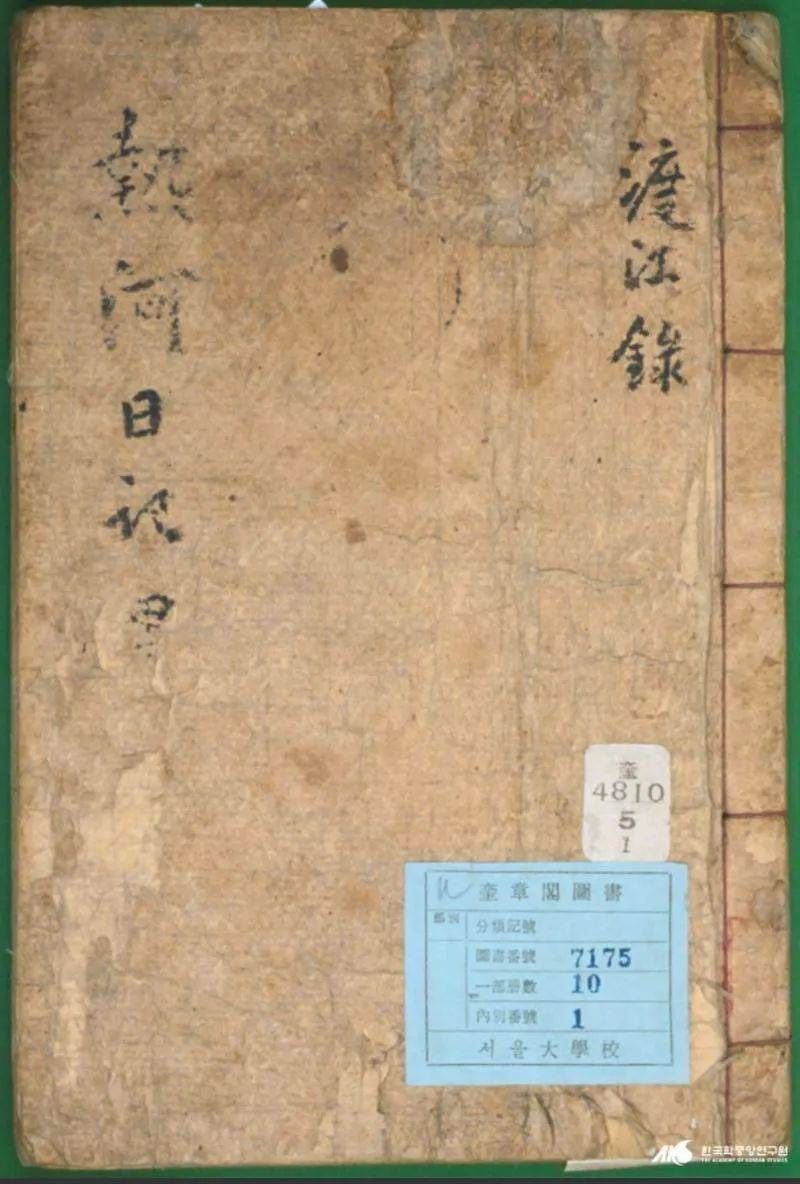 渡江錄
熱河日記
奎
4810
5
1
奎章閣圖書
分類記號
圖書番號 7175
一部冊數 10
內別番號 1
서울大學校
한국학중앙연구원
THE ACADEMY OF KOREAN STUDIES